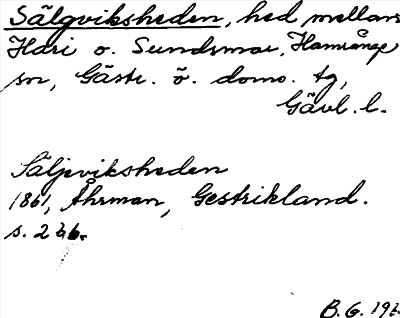 Sälgviksheden, hed mellan
Hari o. Sundsmar, Hamrånge
sn, Gästr. ö. doms. tg,
Gävl. l.
Säljeviksheden
1861, Åhrman, Gestrikland.
s. 246.
B. G. 19